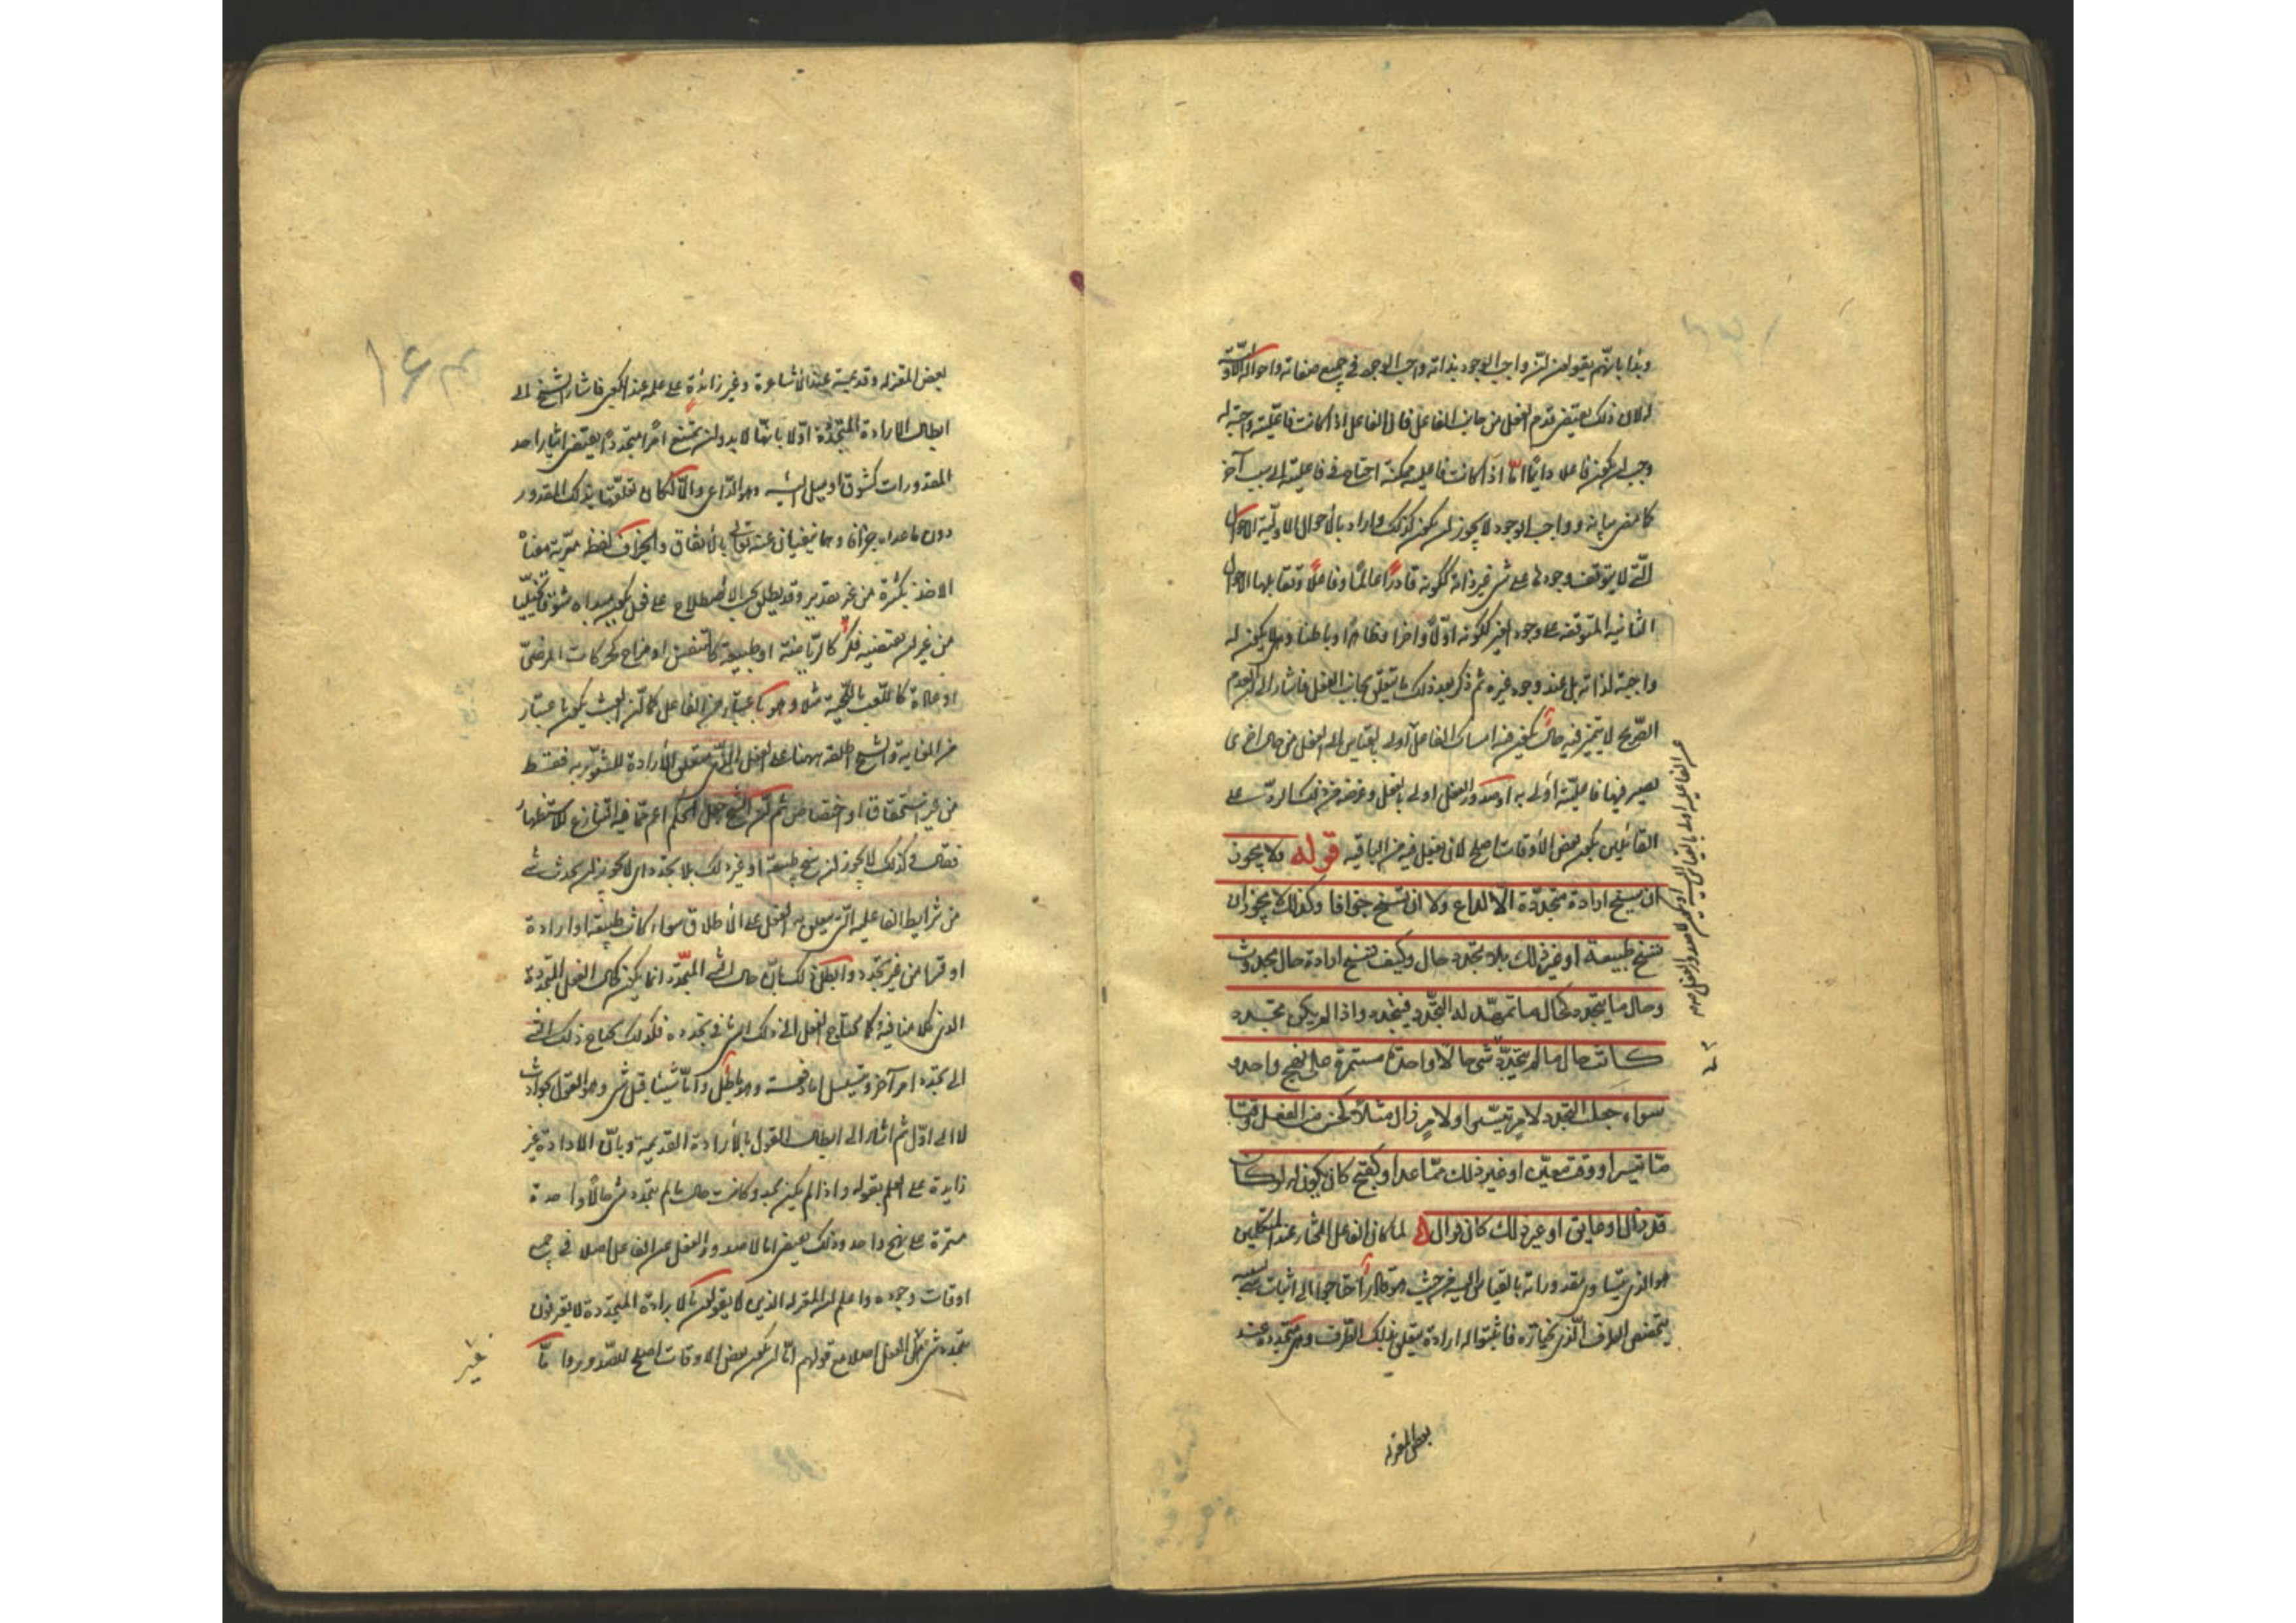 وبدأ بانهم يقولون ان واجب الوجود بذاته واجب الوجود في جميع صفاته واحواله الاولية
لان ذلك يقتضى قدم الفعل من جانب الفاعل فان الفاعل اذا كانت فاعليته واجبة له
وجب ان يكون فاعلا دائما امّا اذا كانت فاعليته ممكنة احتاج في فاعليته الى سبب آخر
كما مضى بيانه وواجب الوجود لا يجوز ان يكون كذلك واراد بالأحوال الاولية الاحوال
الّتى لا يتوقف وجودها على شى غير ذاته ككونه قادرًا عالمًا وفاعلًا وتقابلها الاحوال
الثانية المتوقفة على وجود الغير ككونه اوّلًا وآخرا وظاهرًا وباطنا وهى لا يكون له
واجبة لذاته بل عند وجود غيره ثم ذكر بعد ذلك ما يتعلق بجانب الفعل فاشار الى ان العدم
الصّريح لا يتميز فيه حال يكون فيه امساك الفاعل اولى بالقياس الى الفعل من حال اخرى
يصير فيها فاعليّته اولى به او صدور الفعل اولى بالفعل وغرضه من ذلك الرد على
القائلين بكون بعض الأوقات اصلح لان يفعل فيه من الباقية قوله ولا يجوز
ان يسنح ارادة متجددة الّا لداع ولا ان تسنح جزافا وكذلك لا يجوز ان
تسنح طبيعة او غير ذلك بلا تجدد حال وكيف تسنح ارادة حال تجددت
وحال ما يتجدد كحال ما تمهّد له التجدّد فيتجدد واذا لم يكن تجدد
كانت حال ما لم يتجدّد شى حالًا واحدة مستمرة على نهج واحد و
سواء جعلت التجدد لامر تيسّر او لامر زال مثلًا كحسن من الفعل وقتا
مّا تيسر او وقت معيّن او غير ذلك ممّا عدا وكقبح كان يكون له لو كان
قد زال او عايق او غير ذلك كان فزال لما كان الفاعل المختار عند المتكلمين
هو الذى يتساوى مقدوراته بالقياس اليه من حيث هو قادر احتاجوا الى اثبات شى
يتخصص الطرف الّذى يختاره فاثبتوا له ارادة يتعلق بذلك الطرف وهى متجددة عند
بعض المعتزلة
بعض المعتزله وقديمة عند الأشاعرة وغير زائدة على علمه عند الكعبى فاشار الشيخ الى
ابطال الارادة المتجددة اوّلا بانّها لا بد وان تتبع امرًا متجددًا يقتضى ايثار احد
المقدورات كشوق او ميل اليه وهو الدّاعى والّا لكان تعلّقها بذلك المقدور
دون ما عداه جزافا وهما منفيان عنه تعالى بالاتفاق والجزاف لفظة معرّبة معناه
الاخذ بكثرة من غير تقدير وقد يطلق بحسب الاصطلاح على فعل يكون مبداه شوقا تخيّليا
من غير ان يقتضيه فكر كالرياضة او طبيعة كالتنفس او مزاج كحركات المرضى
او عادة كاللّعب باللّحية مثلا وهو باعتبار من الفاعل كما انّ العبث يكون باعتبار
من الغاية والشيخ اطلقه ههنا على الفعل الّذى يتعلق الأرادة للشعور به فقط
من غير استحقاق او اختصاص ثم ان الشيخ جعل الحكم اعم مما فيه التنازع للاستظهار
فقال وكذلك لا يجوز ان تسنح طبيعة او غير ذلك بلا تجدد اى لا يجوز ان يحدث شى
من شرايط الفاعلية الّتى يتعلق بها الفعل على الاطلاق سواء كانت طبيعة او ارادة
او قسرا من غير تجدد وابطل ذلك بانّ حال الشى المتجدّد انما يكون كحال الفعل المتجددة
الذى كلامنا فيه فكما يحتاج الفعل الى ذلك الشى في تجدده فكذلك يحتاج ذلك الشى
الى تجدد امر آخر ويتسلسل اما دفعة وهو باطل وامّا شيئا قبل شى وهو القول بحوادث
لا الى اوّل ثم اشار الى ابطال القول بالأرادة القديمة وبانّ الارادة غير
زايدة على العلم بقوله واذا لم يكن تجدد كانت حال ما لم يتجدد شى حالًا واحدة
مستمرة على نهج واحد وذلك يقتضى اما لا صدور الفعل عن الفاعل اصلا في جميع
اوقات وجوده واعلم ان المعتزله الذين لا يقولون بالارادة المتجددة لا يعترفون
بتجدد شى قبل الفعل اصلا مع قولهم امّا ان يكون بعض الاوقات اصلح للصّدور واما بأن
غير